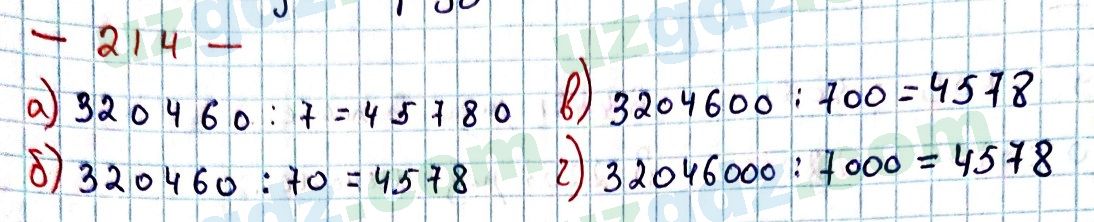 - 214 -
а) 320460 : 7 = 45780
б) 320460 : 70 = 4578
в) 3204600 : 700 = 4578
г) 32046000 : 7000 = 4578